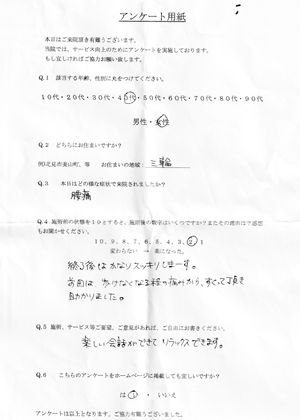 アンケート用紙
本日はご来院頂き有難うございます。
当院では、サービス向上のためにアンケートを実施しております。
もし宜しければご協力お願い致します。
Q.1 該当する年齢、性別に丸をつけてください。
10代・20代・30代・40代・50代・60代・70代・80代・90代
男性・女性
Q.2 どちらにお住まいですか?
例)北見市美山町、等 お住まいの地域: 三輪
Q.3 本日はどの様な症状で来院されましたか?
腰痛
Q.4 施術前の状態を10とすると、施術後の数字はいくつですか?またその理由は?感想
もお聞かせください。
10, 9, 8, 7, 6, 5, 4, 3, 2, 1
変わらない → 楽になった。
終了後はかなりスッキリしまーす。
前回は、歩けなくなる程の痛みから、すくって頂き
助かりました。
Q.5 施術、サービス等ご要望、ご意見があれば、ご自由にお書きください。
楽しい会話ができてリラックスできます。
Q.6 こちらのアンケートをホームページに掲載しても宜しいですか?
はい ・ いいえ
アンケートは以上となります。ご協力有難うございました。